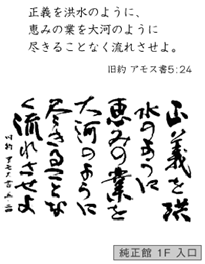 正義を洪水のように、
恵みの業を大河のように
尽きることなく流れさせよ。
旧約 アモス書5:24
正義を洪
水のように
恵みの業を
大河のように
尽きることな
く流れさせよ
旧約 アモス書五・二四
純正館 1F 入口